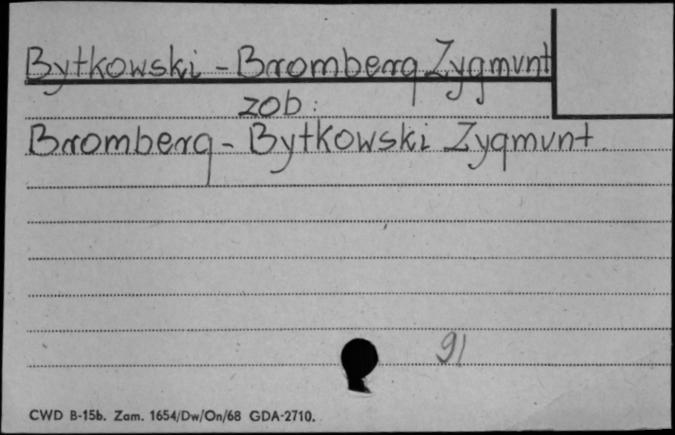 Bytkowski - Bromberg Zygmunt
zob:
Bromberg - Bytkowski Zygmunt.
91
CWD B-15b. Zam. 1654/Dw/On/68 GDA-2710.